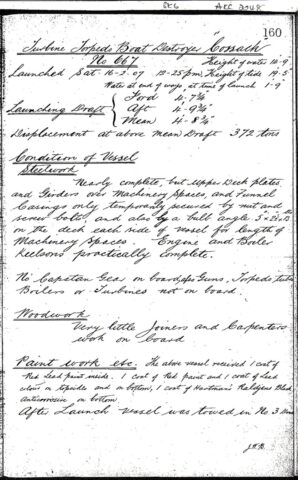 160
Turbine Torpedo Boat Destroyer "Cossack"
No 667 Height of water 10'-9"
Launched Sat. 16-2-07 12-25 pm Height of tide 19-5"
Water at end of ways at time of launch 1-9"
Launching Draft
Ford 4-7¼"
Aft 4-9¼"
Mean 4-8¼"
Displacement at above Mean Draft 372 tons
Condition of Vessel
Steelwork
Nearly complete, but Upper Deck plates
and Girders over Machinery Spaces, and Funnel
Casings only temporarily secured by nut and
screw bolts, and also by a bulb angle
on the deck each side of vessel for length of
Machinery Spaces. Engine and Boiler
Keelsons practically complete.
No Capstan Gear on board Guns, Torpedo tubes
Boilers or Turbines not on board.
Woodwork
Very little Joiners and Carpenters
work on board
Paint work etc. The above vessel received 1 coat of
Red Lead paint inside. 1 coat of Red paint and 1 coat of Lead
colour on topside and on bottom, 1 coat of Hartman's Rahtjens Black
Anticorrosive on bottom.
After Launch vessel was towed in No. 3